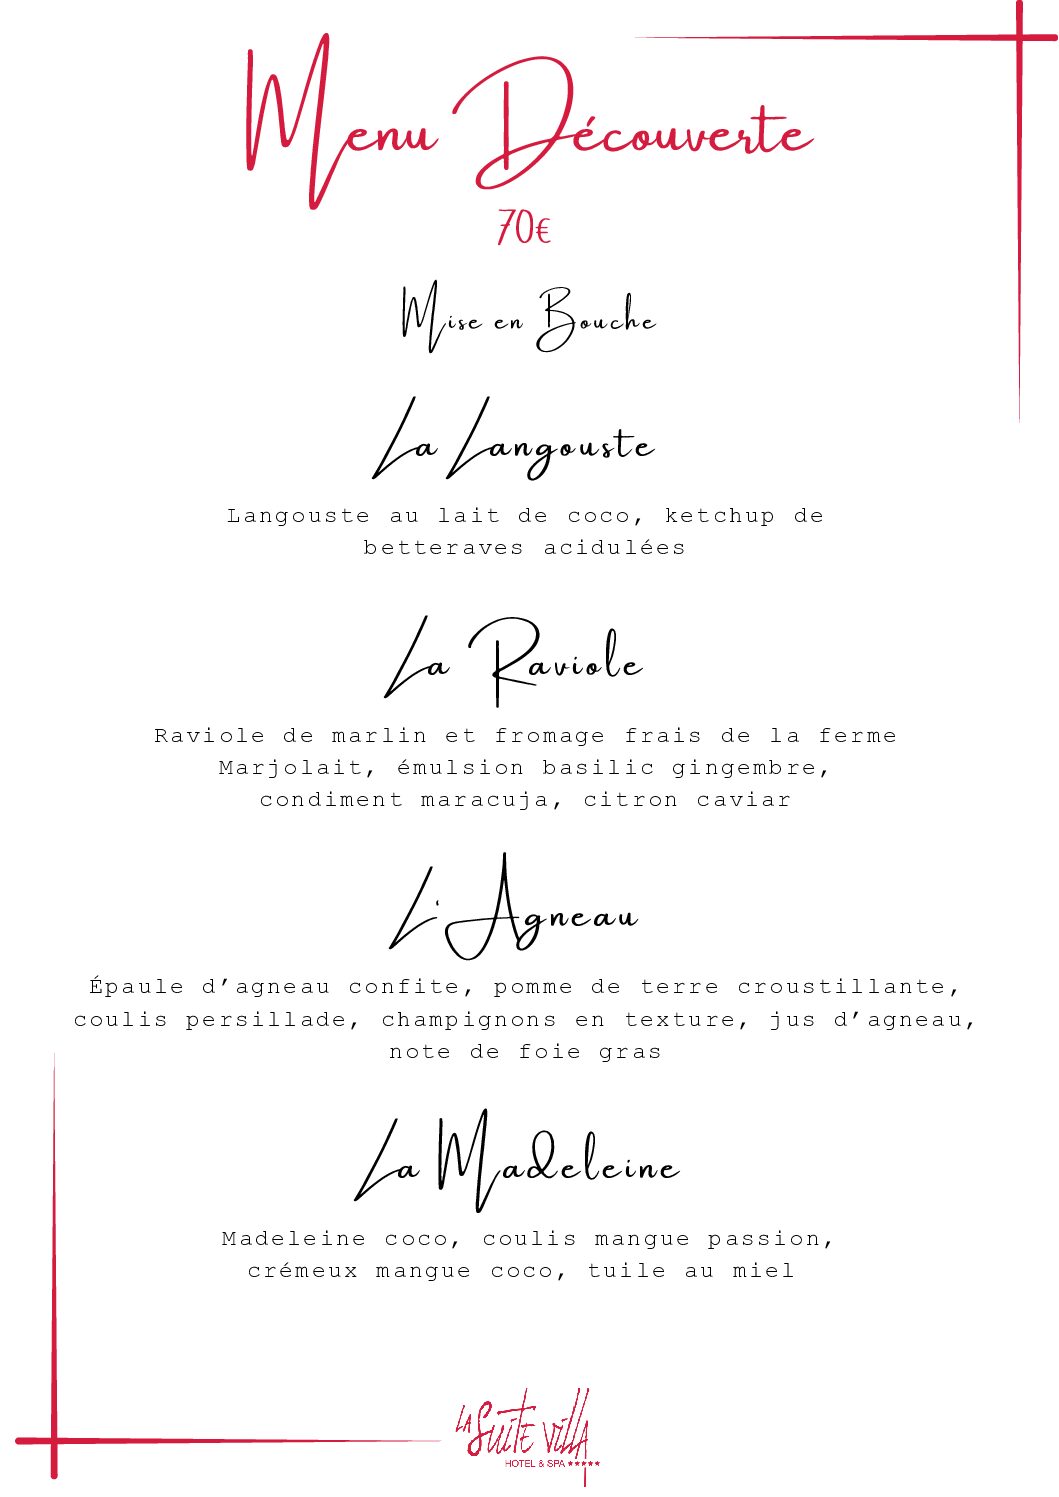 Menu Découverte
70€
Mise en Bouche
La Langouste
Langouste au lait de coco, ketchup de
betteraves acidulées
La Raviole
Raviole de marlin et fromage frais de la ferme
Marjolait, émulsion basilic gingembre,
condiment maracuja, citron caviar
L'Agneau
Épaule d’agneau confite, pomme de terre croustillante,
coulis persillade, champignons en texture, jus d’agneau,
note de foie gras
La Madeleine
Madeleine coco, coulis mangue passion,
crémeux mangue coco, tuile au miel
LA SUITE VILLA
HOTEL & SPA ★★★★★